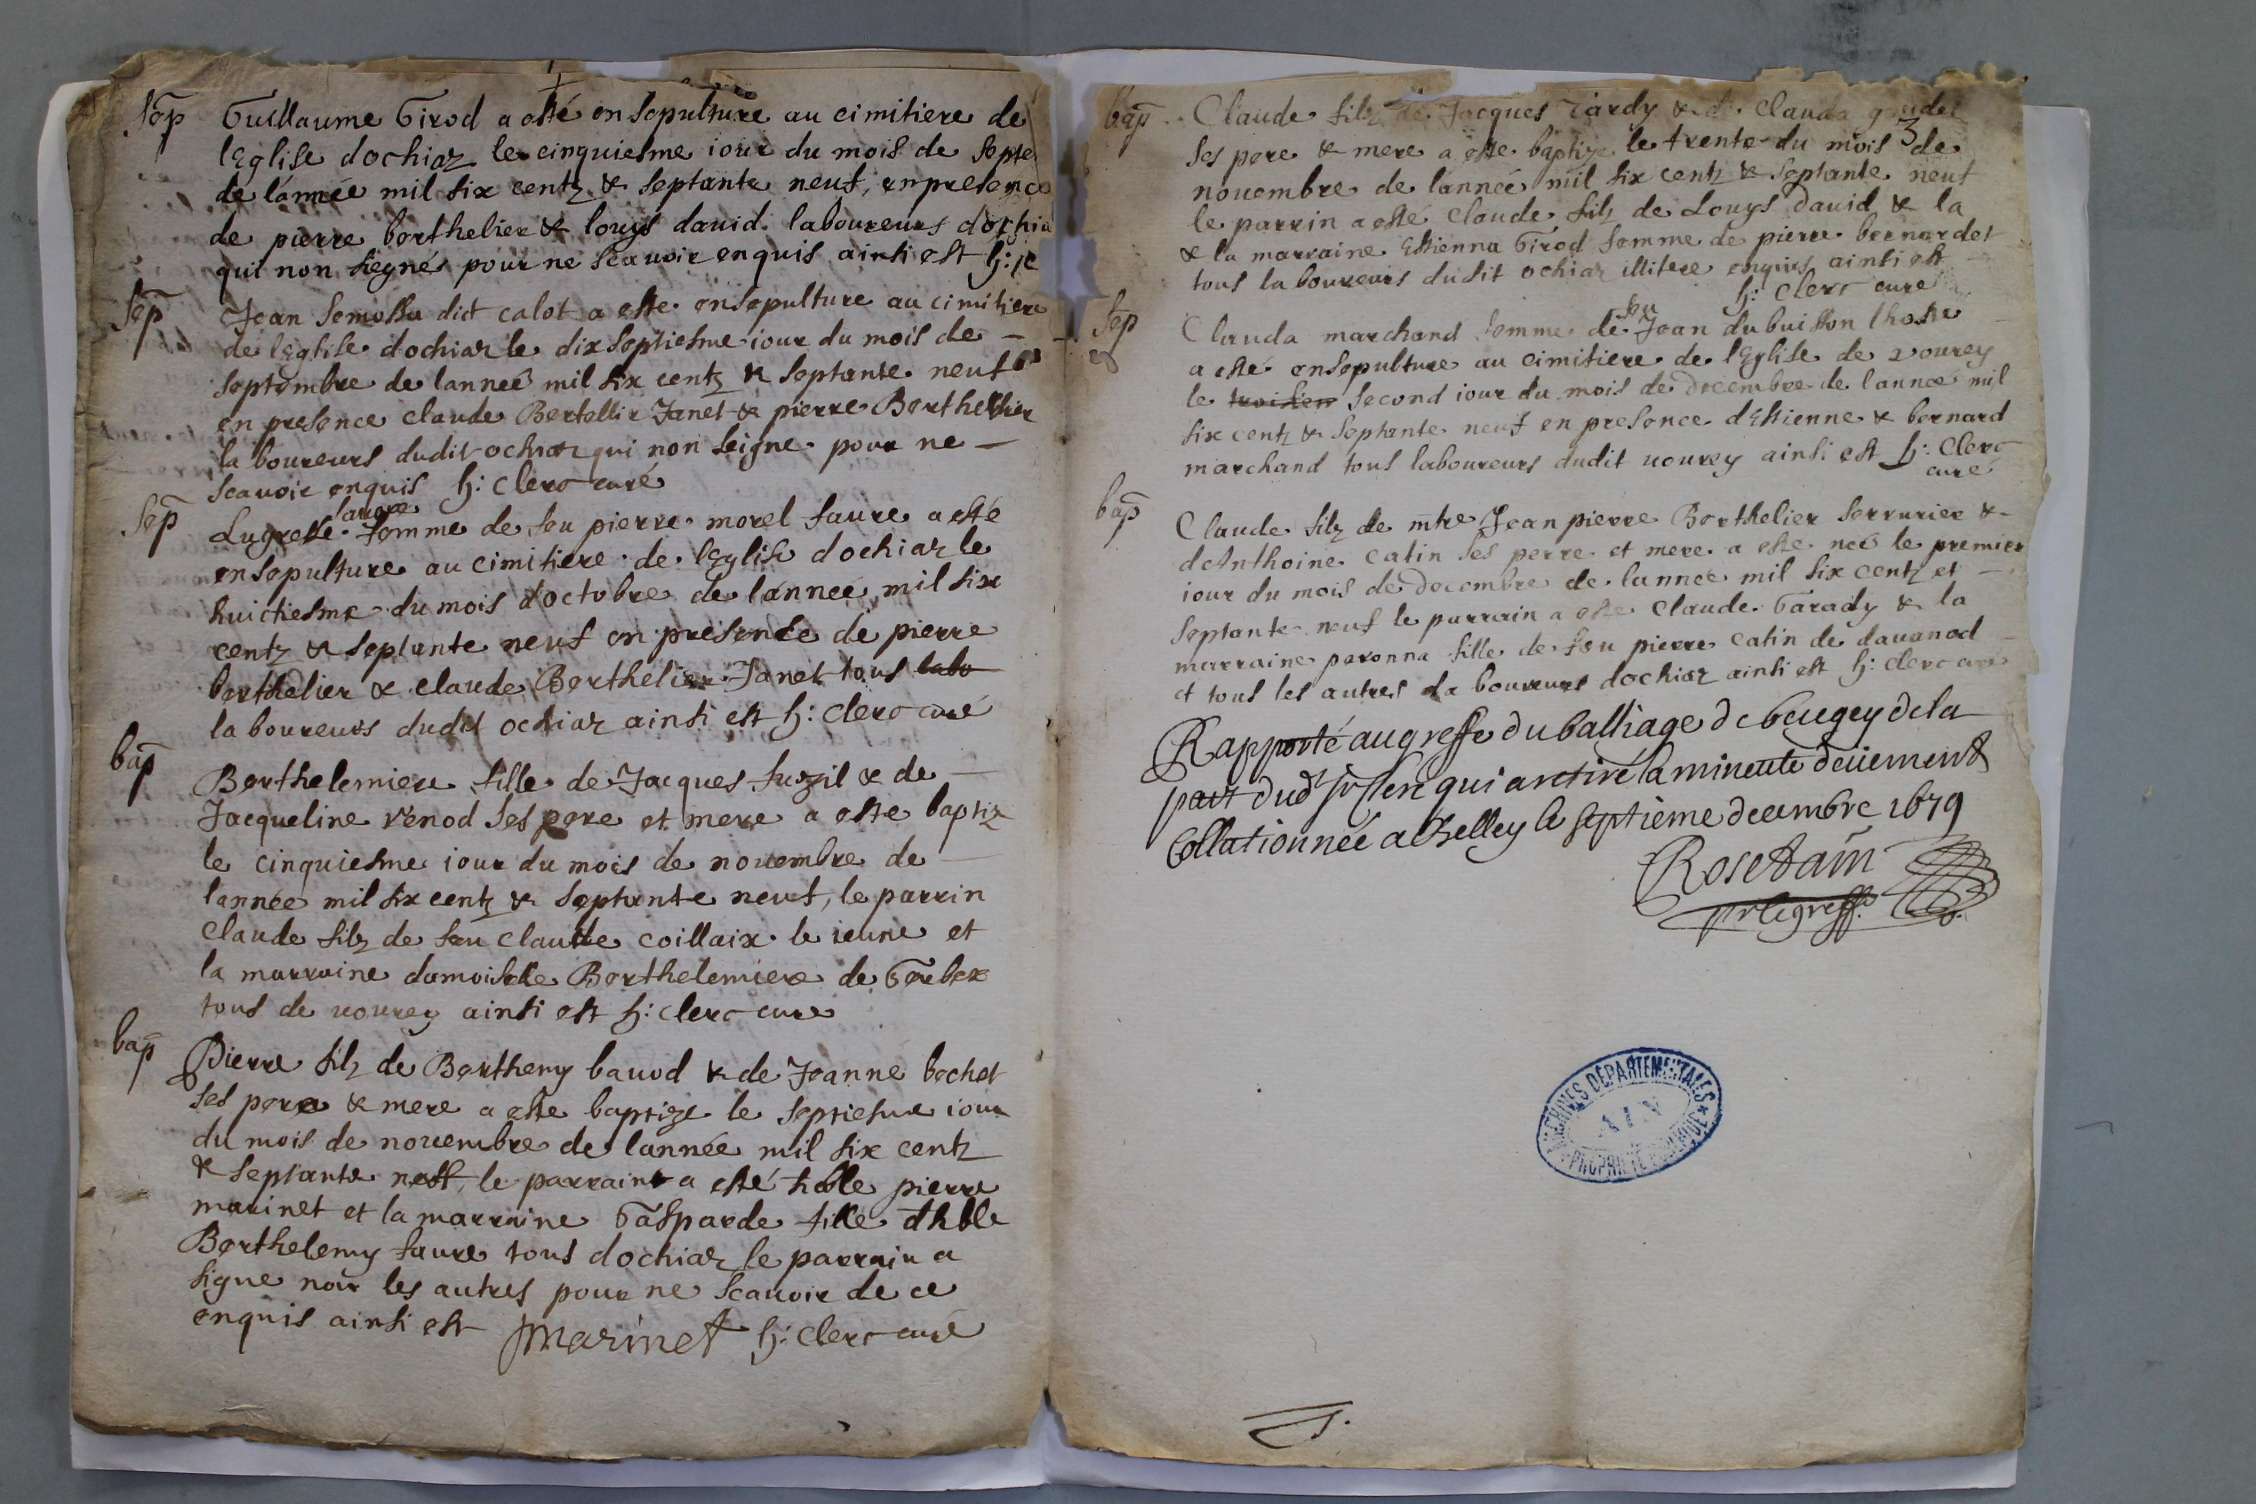 sep Guillaume Girod a esté ensepulture au cimitiere de
lEglise dochiaz le cinquiesme iour du mois de septe
de lánnée mil six centz & septante neuf, en presence
de pierre berthelier & louys dauid laboureurs dochia
qui non siegnés pour ne scauoir enquis ainsi est h: je
sep Jean dict calot a este ensepulture au cimitiere
de lEglise dochiaz le dix septiesme iour du mois de
septembre de lanneé mil six centz & septante neuf
en presence claude Bertellir Janet & pierre Berthelier
laboureurs dudit ochiaz qui non seigne pour ne
scauoir enquis h: clerc curé
sauore
sep Lugresse femme de feu pierre morel faure a esté
ensepulture au cimitiere de lEglise dochiaz le
huictiesme du mois d'octobre de lánneé mil six
centz & septante neuf en presence de pierre
berthelier & claude Berthelier Janet tous labo
laboureurs dudit ochiaz ainsi est h: clerc curé
bap Berthelemiere fille de Jacques fuzil & de
Jacqueline venod ses pere et mere a este baptiz
le cinquiesme iour du mois de nouembre de
lannée mil six centz & septante neuf, le parrin
claude filz de feu claude coillaix le ieune et
la marraine damoiselle Berthelemiere de Gerbex
tous de uourey ainsi est h: clerc cure
bap Pierre filz de Berthemy bauod & de Jeanne bochet
ses pere & mere a este baptize le septiesme iour
du mois de nouembre de lannée mil six centz
& septante neuf, le parraint a esté hble pierre
marinet et la marraine Gasparde fille dhble
Berthelemy faure tous dochiaz le parrain a
signe non les autres pour ne scauoir de ce
enquis ainsi est Marinet h: clerc curé
bap Claude filz de Jacques Tardy & de Clauda
3
ses pere & mere a este baptize le trente du mois de
nouembre de lánneé mil six centz & septante neuf
le parrin a esté Claude filz de Louys dauid & la
& la marraine Estienna Girod femme de pierre bernardet
tous laboureurs dudit ochiaz illitere enquis ainsi est
h: clerc cure
feu
sep Clauda marchand femme de Jean dubuisson lhoste
a esté ensepulture au cimitiere de lEglise de vourey
le troisien second iour du mois de decembre de lanneé mil
six centz & septante neuf en presence dEstienne & bernard
marchand tous laboureurs dudit uourey ainsi est h: Clerc
cure
bap Claude filz de mtre Jean pierre Berthelier serrurier &
dAnthoine catin ses perre et mere a este neé le premier
iour du mois de decembre de lanneé mil six centz et
septante neuf le parrain a este claude Garady & la
marraine peronna fille de feu pierre catin de dauanod
et tous les autres laboureurs dochiaz ainsi est h: clerc curé
Rapporté au greffe du balliage de beugey de la
part dudt sr clerc qui a retiré la mineute deüement
Collationneé a belley le septième decembre 1679
Rosetain
pr le greff.
ARCHIVES DÉPARTEMENTALES
AIN
PROPRIÉTÉ PUBLIQUE